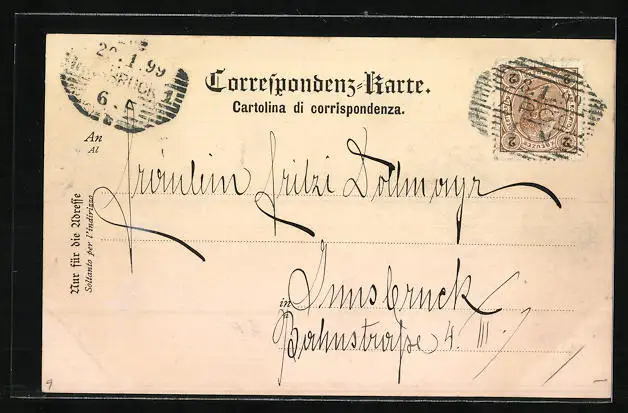 20.1.99
6
Correspondenz-Karte.
Cartolina di corrispondenza.
An
Al
Fräulein Fritzi Dollmayr
Nur für die Adresse
Soltanto per l'indirizzo
in
Innsbruck
Bahnstraße 4. III.
2
2
9